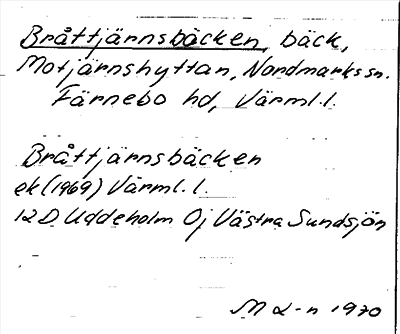 Bråttjärnsbäcken, bäck,
Motjärnshyttan, Nordmarks sn.
Färnebo hd, Värml. l.
Bråttjärnsbäcken
ek (1969) Värml. l.
12 D Uddeholm 0j Västra Sundsjön
M L-n 1970